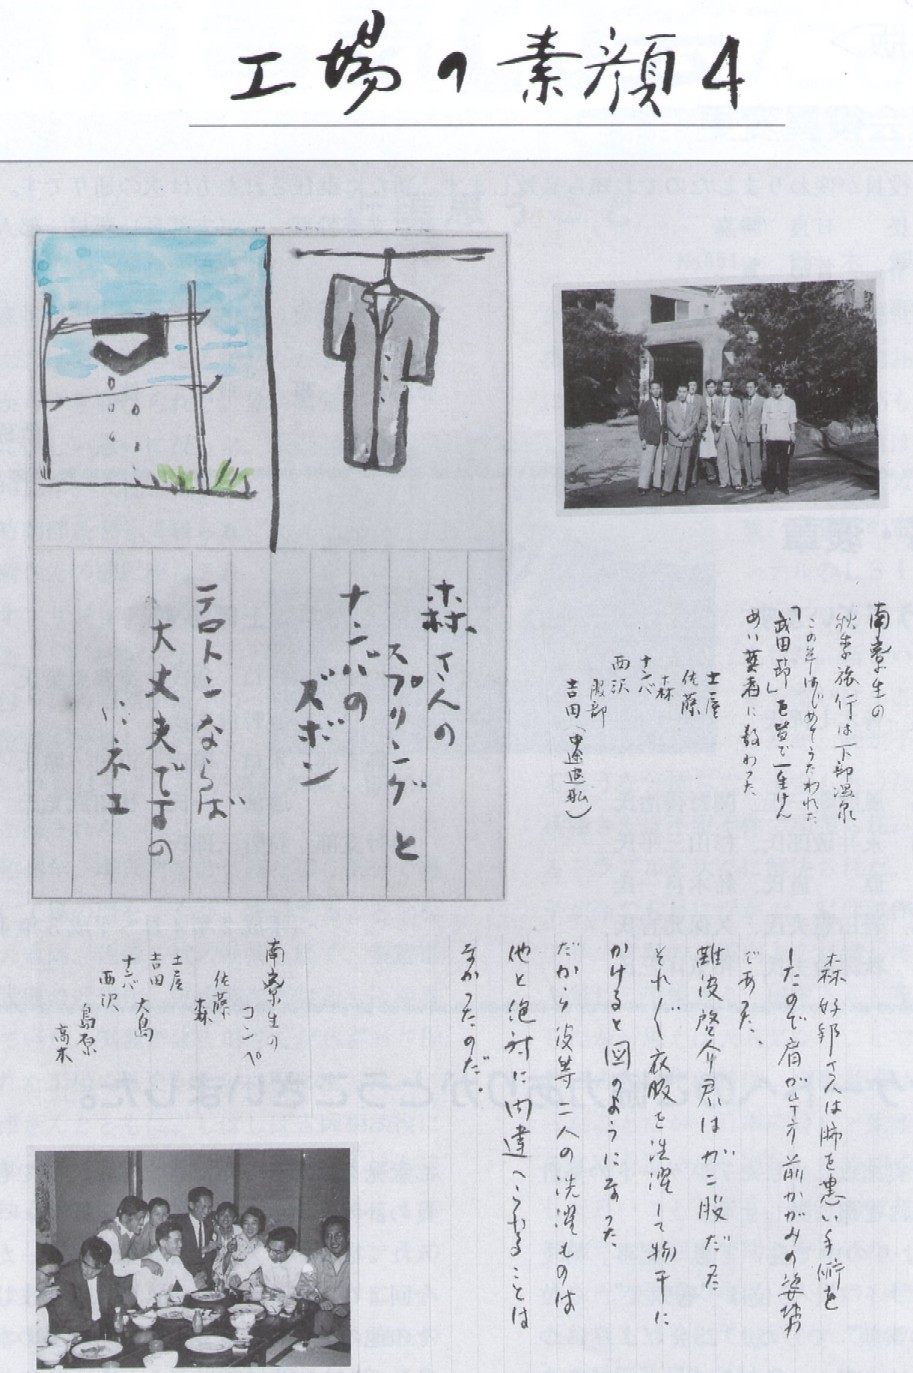 工場の素顔4
南寮生の
秋季旅行は下部温泉
この年はじめてうたわれた
「武田節」を皆で一生けん
めい芸者に教わった
土屋
佐藤
森
ナンバ
西沢
服部
吉田
森さんの
スプリングと
ナンバの
ズボン
テトロンならば
大丈夫ですの
にネエ
森好郎さんは肺を患い手術を
したので肩が下り前かがみの姿勢
であった、
難波啓介君はガニ股だった
それぞれ衣服を洗濯して物干に
かけると図のようになった
だから彼等二人の洗濯ものは
他と絶対に間違へられることは
なかったのだ、
南寮生の
コンペ
佐藤
森
土屋
吉田 大島
ナンバ
西沢
島原
高木